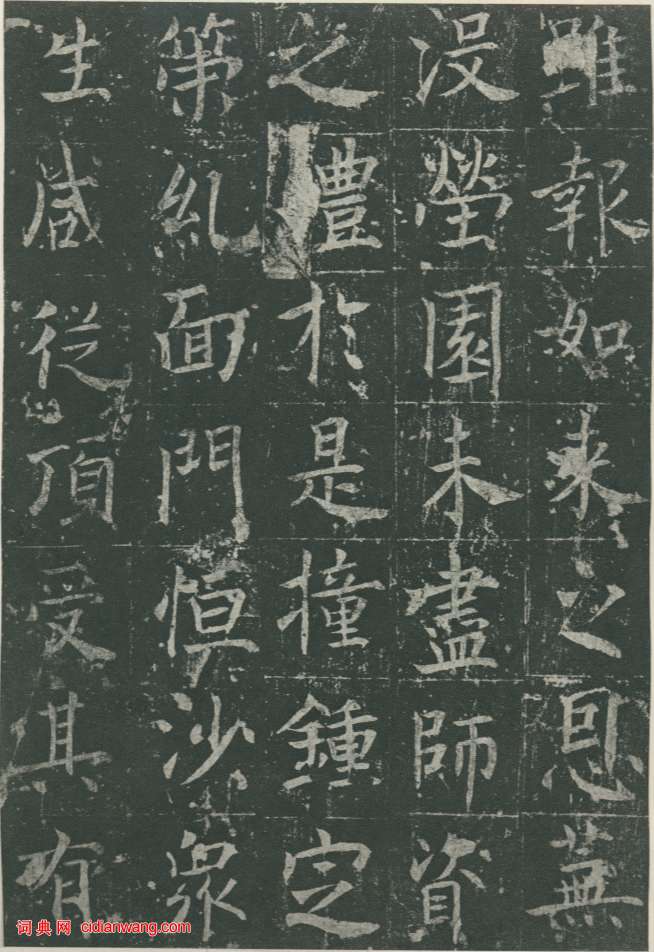 雖報如来之恩蕪
没塋園未盡師資
之禮於是撞鍾定
第糺面門恒沙眾
生咸從頂受其有
词典网 cidianwang.com